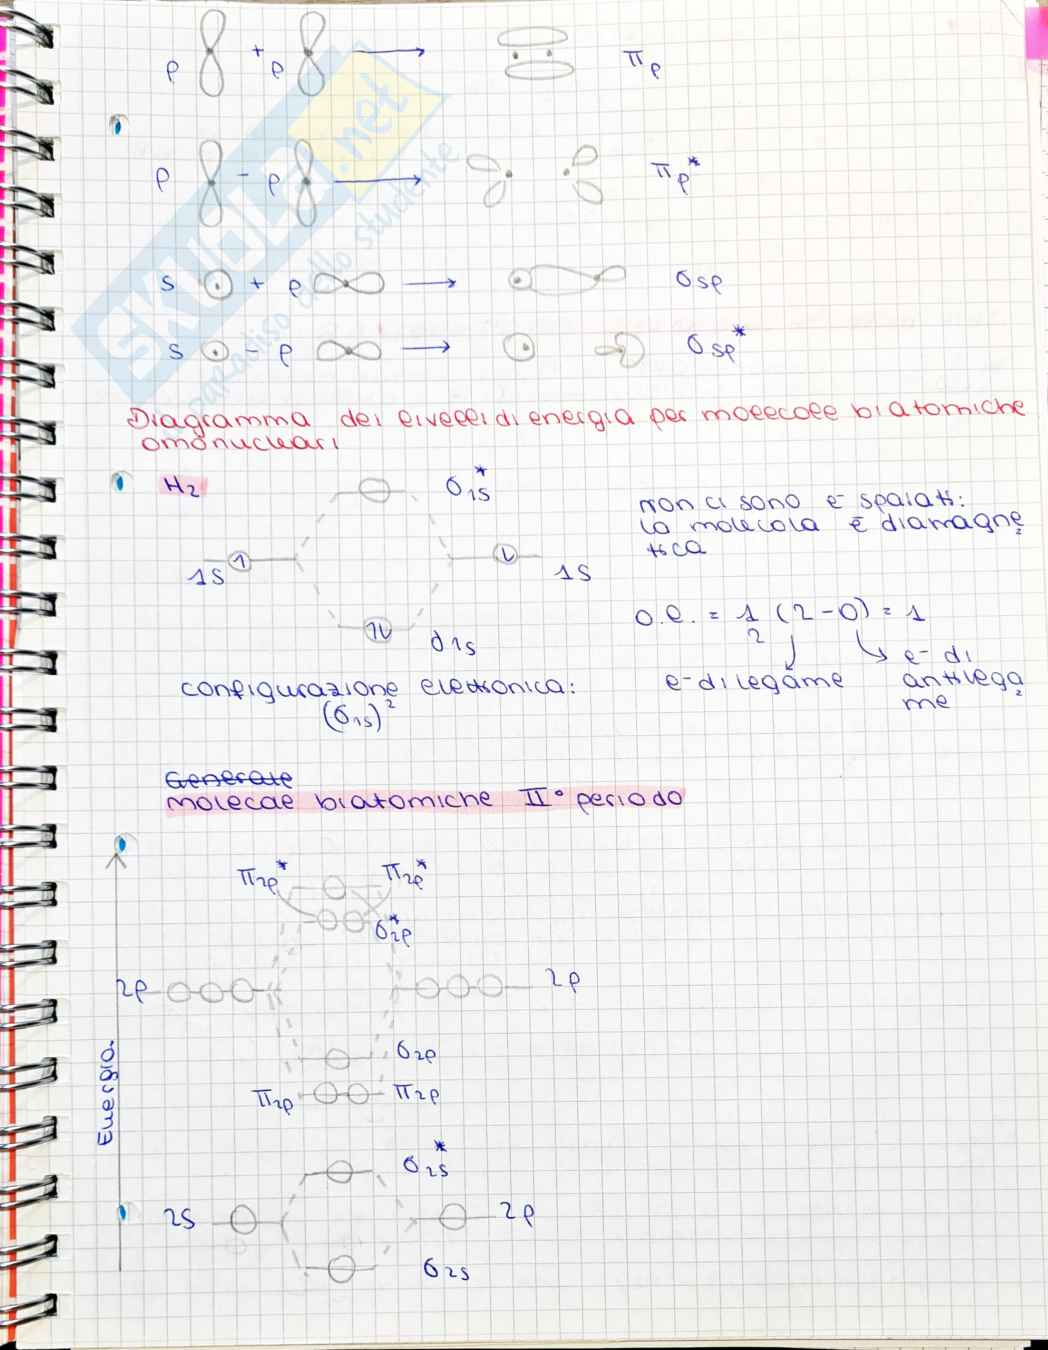 p + p → πp
p - p → πp*
s + p → σsp
s - p → σsp*
SKUOLA.net
paradiso dello studente
Diagramma dei livelli di energia per molecole biatomiche
omonucleari
H2
σ1s*
1s 1s
σ1s
non ci sono e- spaiati:
la molecola è diamagne
tica
o.l. = 1/2 (2-0) = 1
e- di legame
e- di
antilega
me
configurazione elettronica:
(σ1s)²
Generate
molecole biatomiche II° periodo
π2p* π2p*
σ2p*
2p 2p
σ2p
π2p π2p
Energia
σ2s*
2s 2p
σ2s